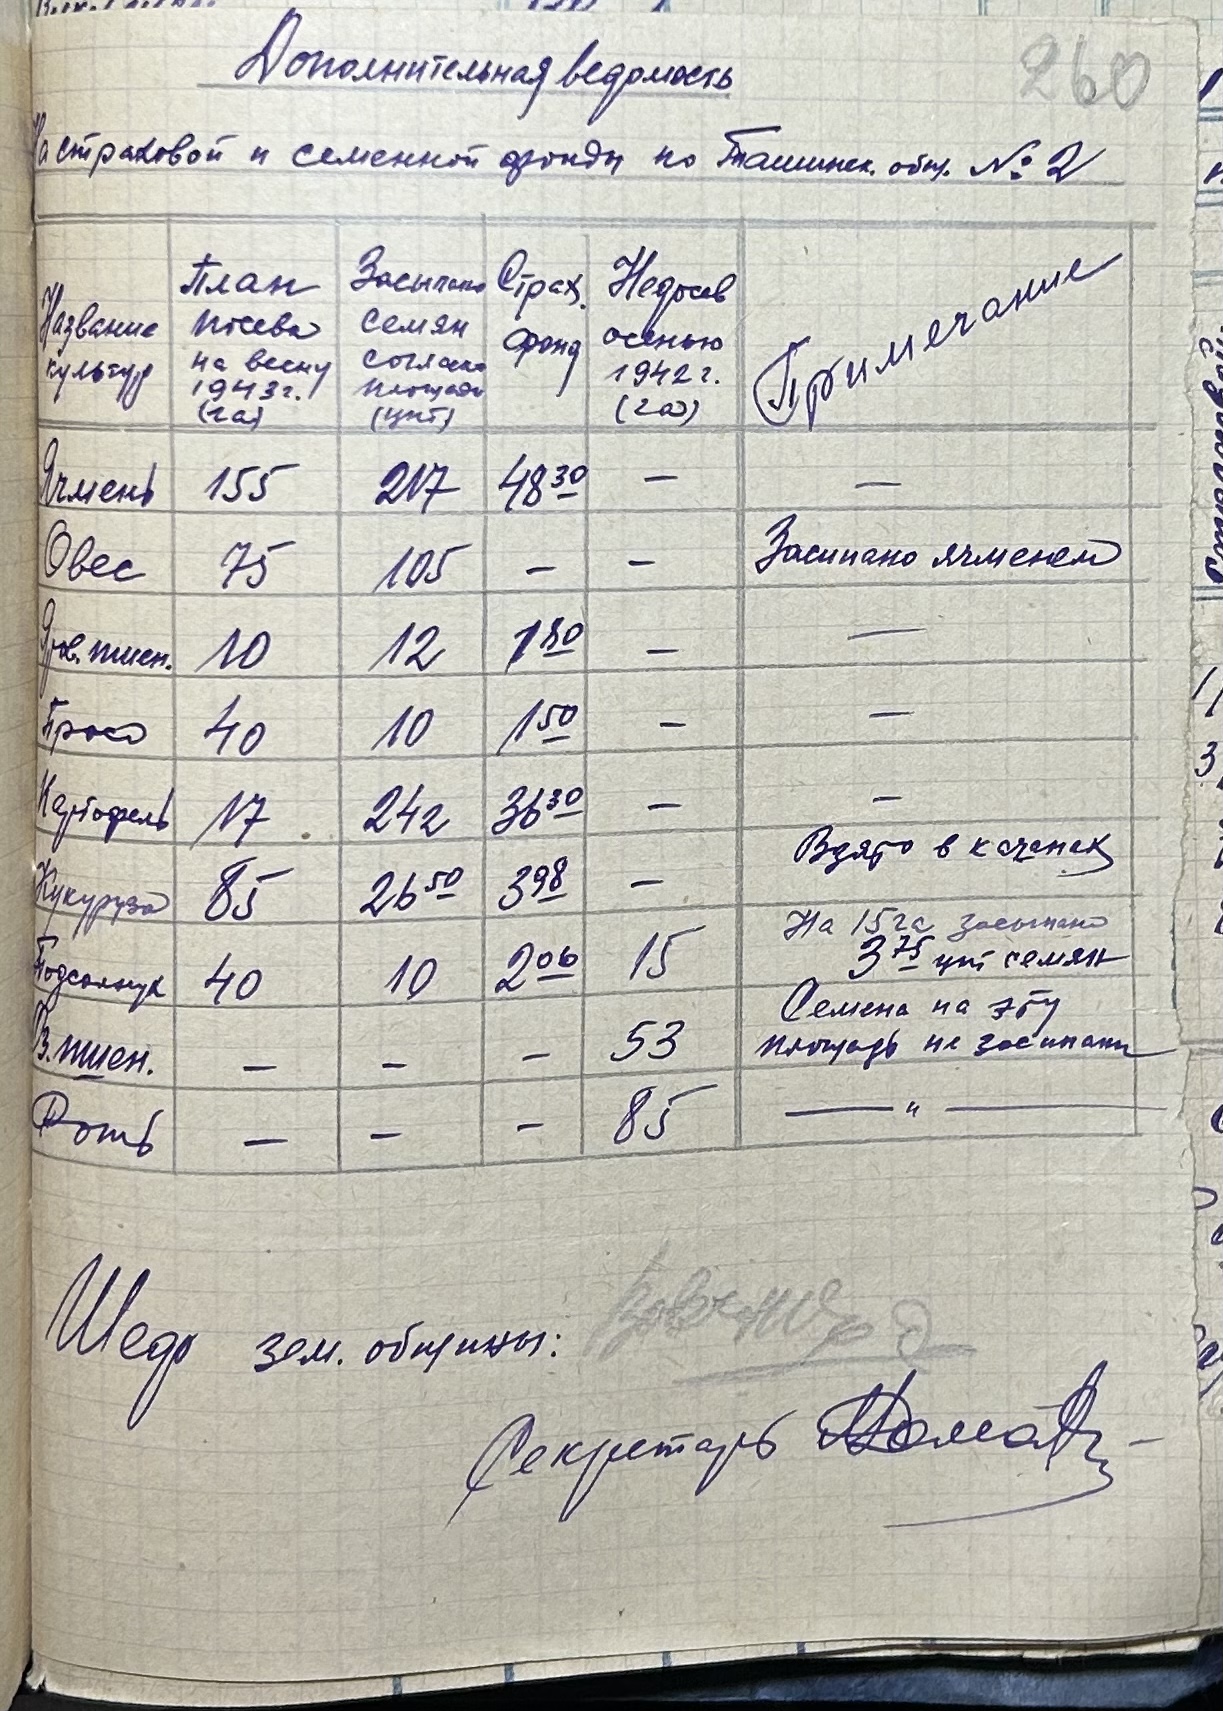 260
Дополнительная ведомость
На страховой и семенной фонды по Ташинск. общ. № 2
Название культур | План посева на весну 1943 г. (га) | Засыпано семян согласно площади (цнт) | Страх. фонд | Недосев осенью 1942 г. (га) | Примечание
Ячмень | 155 | 217 | 48 30 | — | —
Овес | 75 | 105 | — | — | Засипано ячменем
Яров. пшен. | 10 | 12 | 1 80 | — | —
Просо | 40 | 10 | 1 50 | — | —
Картофель | 17 | 242 | 36 30 | — | —
Кукуруза | 85 | 26 50 | 3 98 | — | Взято в качанах
Подсолнух | 40 | 10 | 2 06 | 15 | На 15 га засыпано 3 75 цнт семян
Оз. пшен. | — | — | — | 53 | Семена на эту площадь не засипани
Рожь | — | — | — | 85 | — " —
Шеф зем. общины:
Секретарь